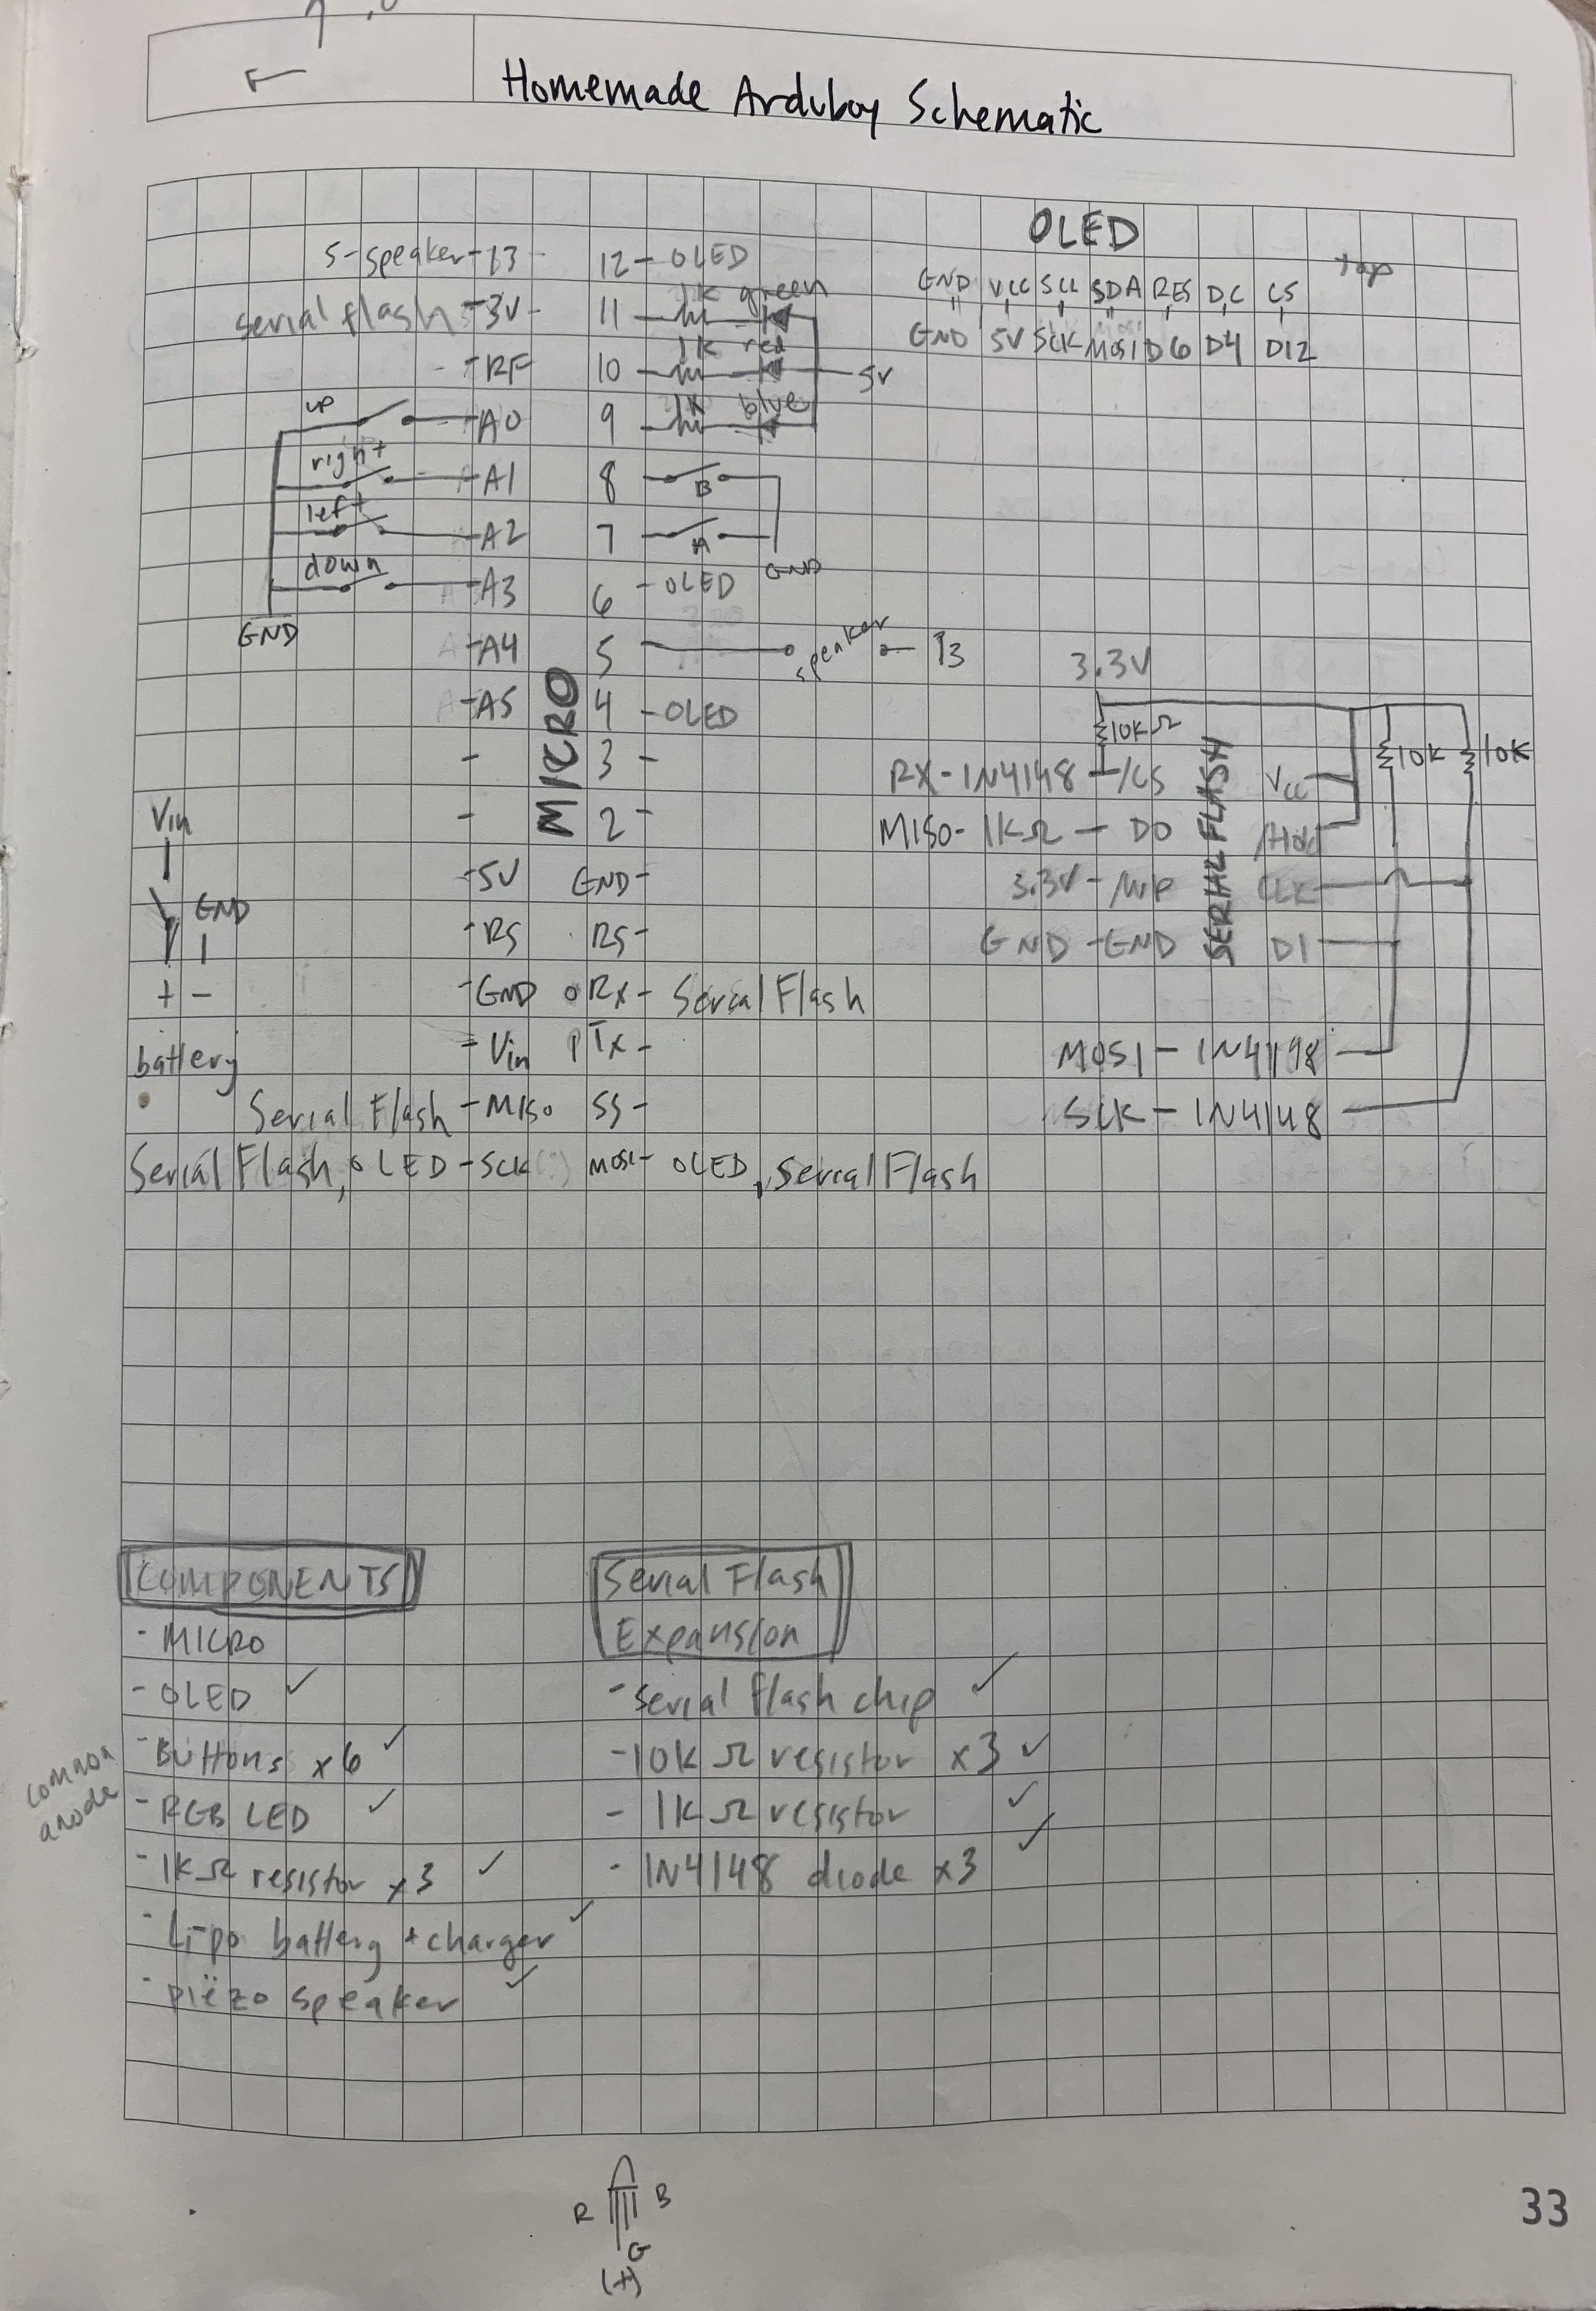 Homemade Arduboy Schematic
OLED
top
GND VCC SCL SDA RES DC CS
GND 5V SCK MOSI D6 D4 D12
5-speaker-13 12-OLED
serial flash-3V 11 1K green
-RF 10 1K red 5V
up A0 9 1K blue
right A1 8 B
left A2 7 A
down A3 6 -OLED GND
GND -A4 5 speaker 13
-A5 4 -OLED
- 3 -
- 2 -
-5V GND-
-RS RS-
-GND 0 RX- Serial Flash
-Vin 1 TX-
Serial Flash -MISO SS-
Serial Flash, OLED -SCK MOSI- OLED, Serial Flash
MICRO
Vin
GND
+ -
battery
3.3V
10KΩ 10K 10K
RX-1N4148 /CS Vcc
MISO-1KΩ - DO /Hold
3.3V-/WP CLK
GND-GND DI
SERIAL FLASH
MOSI-1N4148
SCK-1N4148
COMPONENTS
- MICRO
- OLED ✓
- Buttons x6 ✓
- RGB LED ✓
common anode
- 1KΩ resistor x3 ✓
- Lipo battery + charger ✓
- piëzo speaker ✓
Serial Flash
Expansion
- serial flash chip ✓
- 10KΩ resistor x3 ✓
- 1KΩ resistor ✓
- 1N4148 diode x3 ✓
R B
G
(+)
33